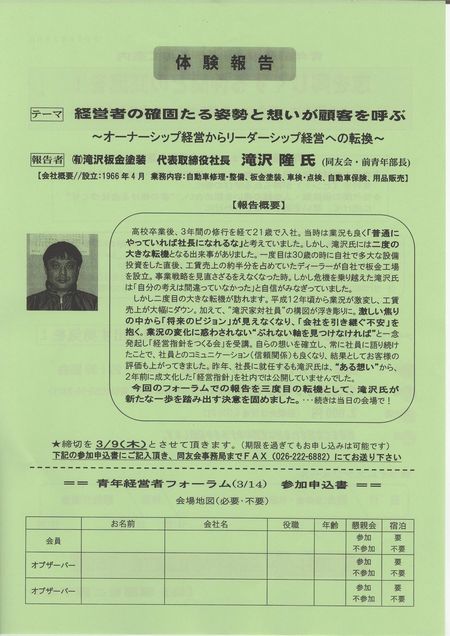 体験報告
テーマ 経営者の確固たる姿勢と想いが顧客を呼ぶ
～オーナーシップ経営からリーダーシップ経営への転換～
報告者 ㈲滝沢板金塗装 代表取締役社長 滝沢 隆 氏 (同友会・前青年部長)
【会社概要//設立：1966年4月 業務内容：自動車修理・整備、板金塗装、車検・点検、自動車保険、用品販売】
【報告概要】
高校卒業後、3年間の修行を経て21歳で入社。当時は業況も良く「普通に
やっていれば社長になれるな」と考えていました。しかし、滝沢氏には二度の
大きな転機となる出来事がありました。一度目は30歳の時に自社で多大な設備
投資をした直後、工賃売上の約半分を占めていたディーラーが自社で板金工場
を設立。事業戦略を見直さざるをえなくなった時。しかし危機を乗り越えた滝沢氏
は「自分の考えは間違っていなかった」と自信がみなぎっていました。
しかし二度目の大きな転機が訪れます。平成12年頃から業況が激変し、工賃
売上が大幅にダウン。加えて、"滝沢家対社員"の構図が浮き彫りに。激しい焦り
の中から「将来のビジョン」が見えなくなり、「会社を引き継ぐ不安」を
抱く。業況の変化に惑わされない"ぶれない軸を見つけなければ"と一念
発起し「経営指針をつくる会」を受講。自らの想いを確立し、常に社員に語り続け
たことで、社員とのコミュニケーション(信頼関係)も良くなり、結果としてお客様の
評価も上がってきました。昨年、社長に就任する滝沢氏は、"ある想い"から、
2年前に成文化した「経営指針」を社内では公開していませんでした。
今回のフォーラムでの報告を三度目の転機として、滝沢氏が
新たな一歩を踏み出す決意を固めました。…続きは当日の会場で！
★締切を3/9(木)とさせて頂きます。(期限を過ぎてもお申し込みは可能です)
下記の参加申込書にご記入頂き、同友会事務局までFAX(026-222-6882)にてお送り下さい
== 青年経営者フォーラム(3/14) 参加申込書 ==
会場地図(必要・不要)
お名前 会社名 役職 年齢 懇親会 宿泊
会員 参加 不参加 要 不要
オブザーバー 参加 不参加 要 不要
オブザーバー 参加 不参加 要 不要